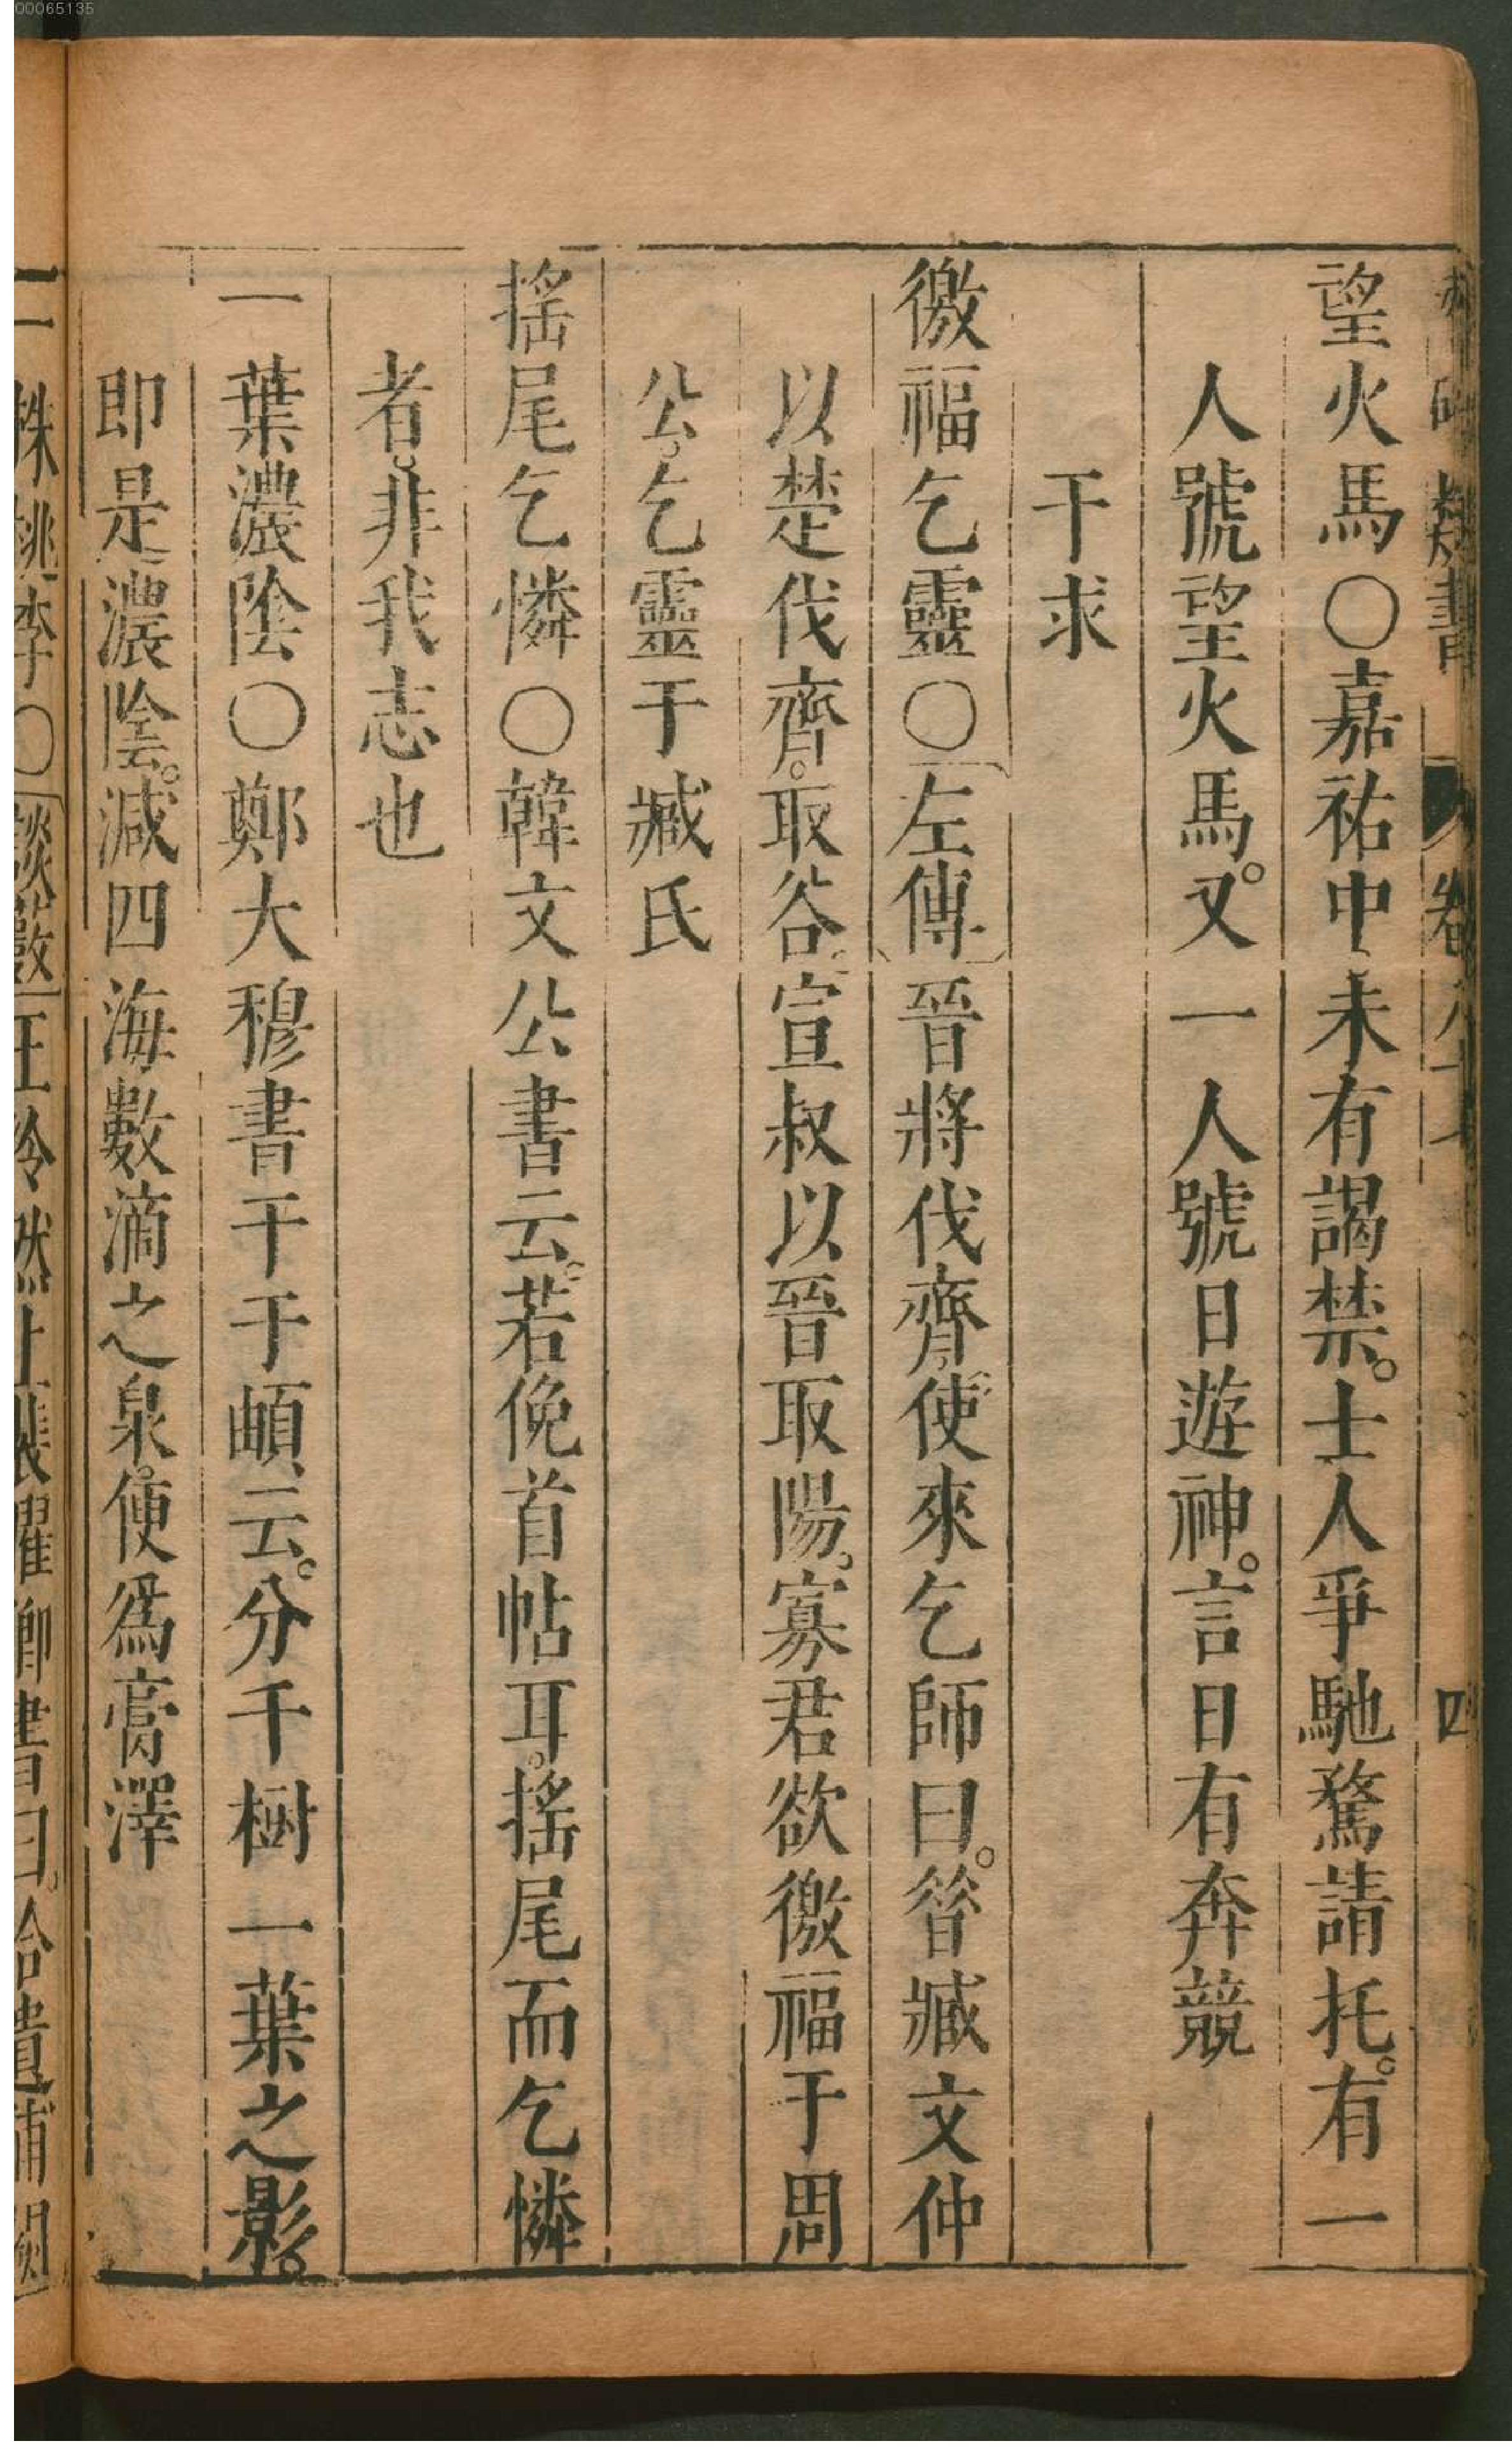 望火馬〇嘉祐中未有謁禁。士人爭馳騖請托。有一
人號望火馬。又一人號日遊神。言日有奔競
干求
徼福乞靈〇左傳晉將伐齊。使來乞師曰。昔臧文仲
以楚伐齊。取谷。宣叔以晉取陽。寡君欲徼福于周
公。乞靈于臧氏
搖尾乞憐〇韓文公書云。若俛首帖耳。搖尾而乞憐
者。非我志也
一葉濃陰〇鄭大穆書干于頔云。分千樹一葉之影。
即是濃陰。減四海數滴之泉。便爲膏澤
00065135